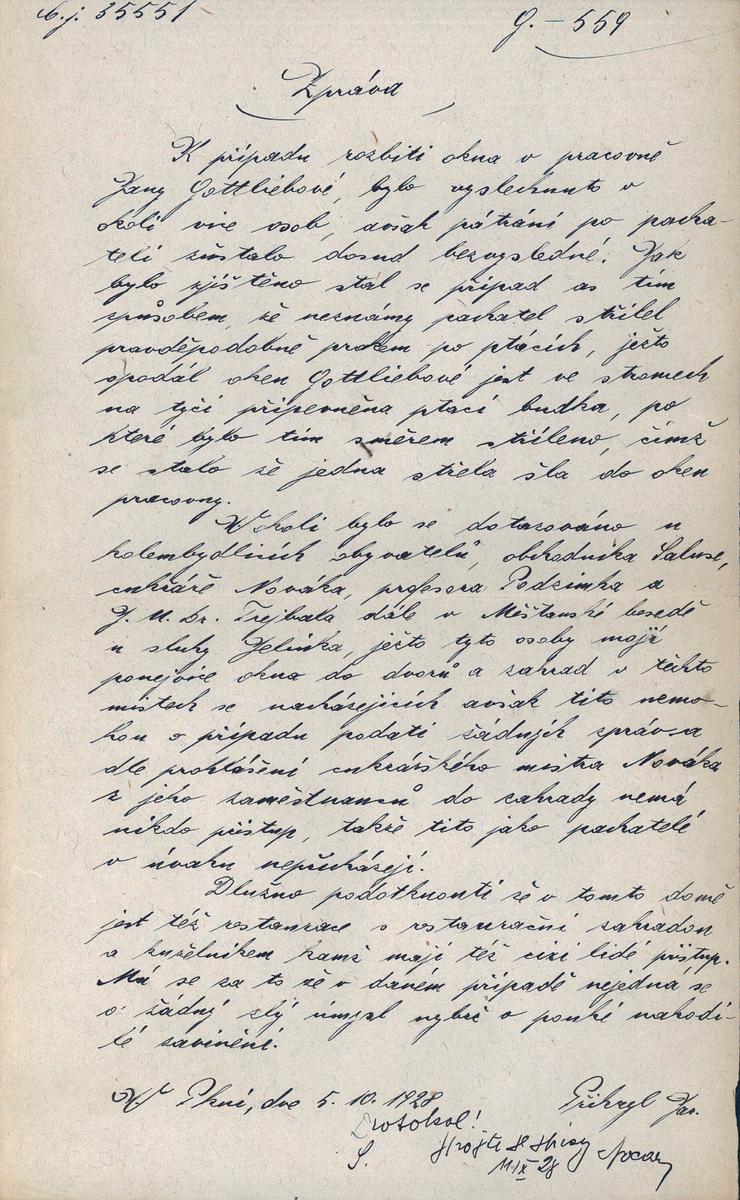 č.j. 35551
9. - 559
Zpráva
K případu rozbití okna v pracovně
Jany Gottliebové, bylo vyslechnuto v
okolí více osob, avšak pátrání po pacha-
teli zůstalo dosud bezvysledné. Jak
bylo zjištěno stal se případ as tím
způsobem, že neznámy pachatel střílel
pravděpodobně prakem po ptácích, ježto
opodál oken Gottliebové jest ve stromech
na tyčí připevněna ptačí budka, po
které bylo tím směrem stříleno, čímž
se stalo že jedna střela šla do oken
pracovny.
V okolí bylo se dotazováno u
kolembydlících obyvatelů, obchodníka Saluse,
cukráře Nováka, profesora Podzimka a
J. U. Dr. Trejbala dále v Měšťanské besedě
u sluhy Jelínka, ježto tyto osoby mají
ponejvíce okna do dvorů a zahrad v těchto
místech se nacházejících avšak tito nemo-
hou o případu podati žádných zpráv a
dle prohlášení cukrářského mistra Nováka
z jeho zaměstnanců do zahrady nemá
nikdo přístup, takže tito jako pachatelé
v úvahu nepřicházejí.
Dlužno podotknouti že v tomto domě
jest též restaurace s restaurační zahradou
a kuželníkem kamž mají též cizí lidé přístup.
Má se za to že v daném případě nejedná se
o žádný zlý úmysl nybrž o pouhé nahodi-
lé zavinění.
V Plzni, dne 5. 10. 1928
Přikryl Jar.
Protokol!
S.
Spojte se spisy
11/X 28 Nocar